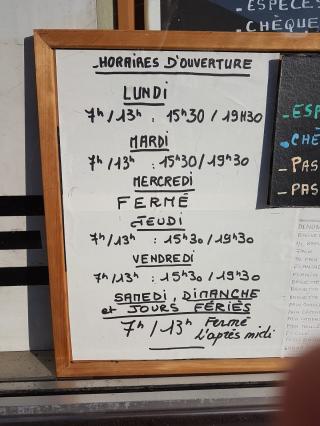 -ESPECES
-CHÈQUE
-HORAIRES D'OUVERTURE
LUNDI
7h/13h : 15h30 / 19H30
MARDI
7h/13h : 15h30/19h30
MERCREDI
FERMÉ
JEUDI
7h/13h : 15h30 /19h30
VENDREDI
7h/13h : 15h30 /19h30
SAMEDI, DIMANCHE
et JOURS FÉRIÉS
7h/13h Fermé
L'après midi
-ESP
-CHÈ
-PAS
-PAS